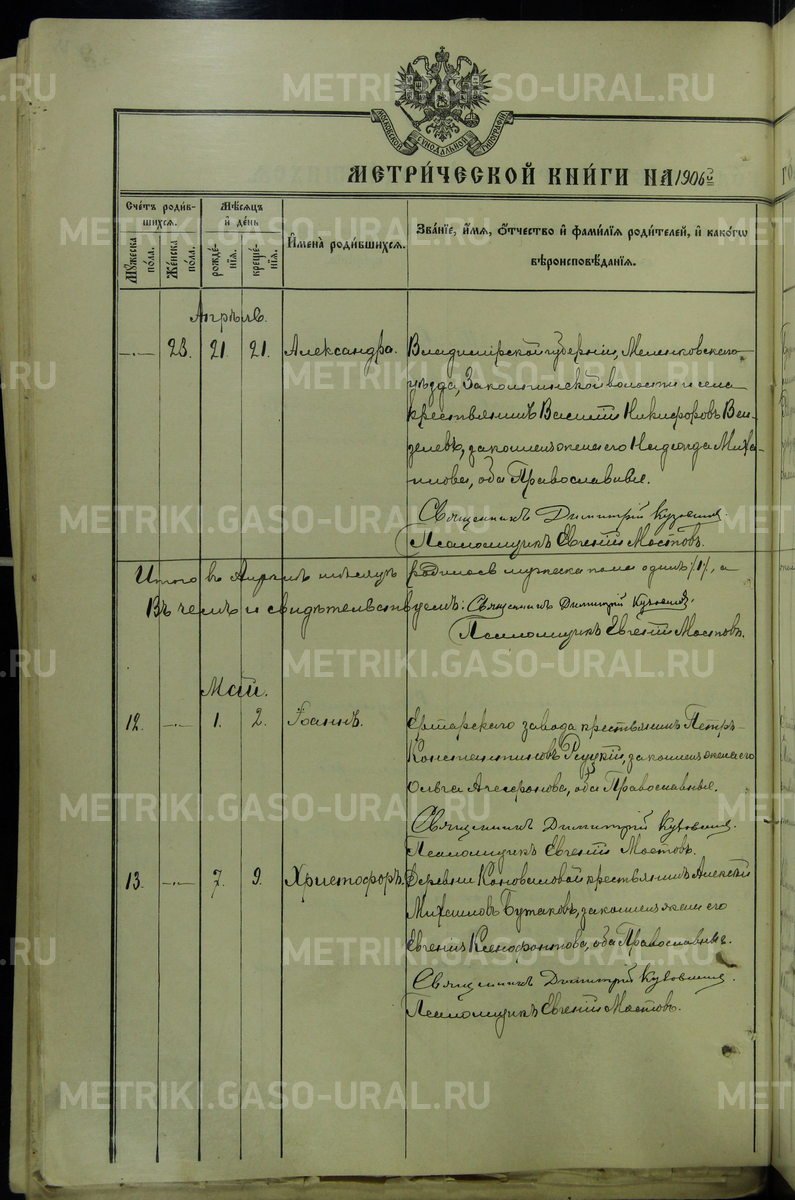 МОСКОВСКОЙ СѴНОДАЛЬНОЙ ТИПОГРАФІИ
МЕТРИ́ЧЕСКОЙ КНИ́ГИ НА 1906 го́
Сче́тъ роди́в-
шихсѧ.
Мѣ́сѧцъ
и҆ де́нь
Мꙋ́жеска по́ла.
Же́нска по́ла.
рожде́-
нїѧ.
креще́-
нїѧ.
И҆мена̀ роди́вшихсѧ.
Зва́нїе, и҆́мѧ, ѻ҆́тчество и҆ фами́лїѧ роди́телей, и҆ како́гѡ
вѣроисповѣ́данїѧ.
Апрѣль.
—.— 23. 21. 21. Александра. Владимірской губерніи, Меленковскаго
уѣзда, Заколпинской волости и села
крестьянинъ Василій Никифоровъ
законная жена его Надежда Миха-
илова, оба Православные.
Священникъ Димитрій
Псаломщикъ Евгеній Мостовъ.
Итого въ Апрѣлѣ мѣсяцѣ родилось мужеска пола одинъ /1/, а
Въ чемъ и свидѣтельствуемъ: Священникъ Димитрій
Псаломщикъ Евгеній Мостовъ.
Май.
12. —.— 1. 2. Іоаннъ. завода крестьянинъ Петръ
Константиновъ законная жена его
Ольга оба Православные.
Священникъ Димитрій
Псаломщикъ Евгеній Мостовъ.
13. —.— 7. 9. Христофоръ. Деревни Коноваловой крестьянинъ Алексѣй
Михаиловъ Бутаковъ, законная жена его
Евгенія Ксенофонтова, оба Православные.
Священникъ Димитрій
Псаломщикъ Евгеній Мостовъ.
METRIKI.GASO-URAL.RU